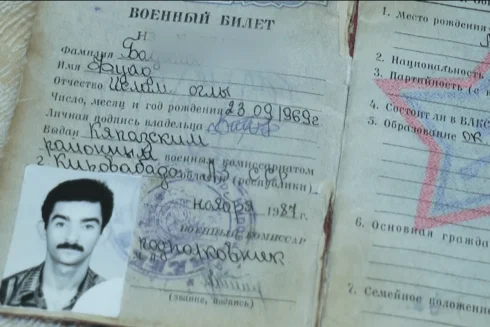 ВОЕННЫЙ БИЛЕТ
Фамилия
Имя Фуад
Отчество Ислам оглы
Число, месяц и год рождения 23.09.1969г
Личная подпись владельца
Выдан Кяпазским
районным военным комиссариатом
г Кировабад области (республики)
ноября 1987 г.
ВОЕННЫЙ КОМИССАР
подполковник
(звание, подпись)
1. Место рождения
2. Национальность
3. Партийность (с к
4. Состоит ли в ВЛКС
5. Образование
6. Основная гражда
7. Семейное положение